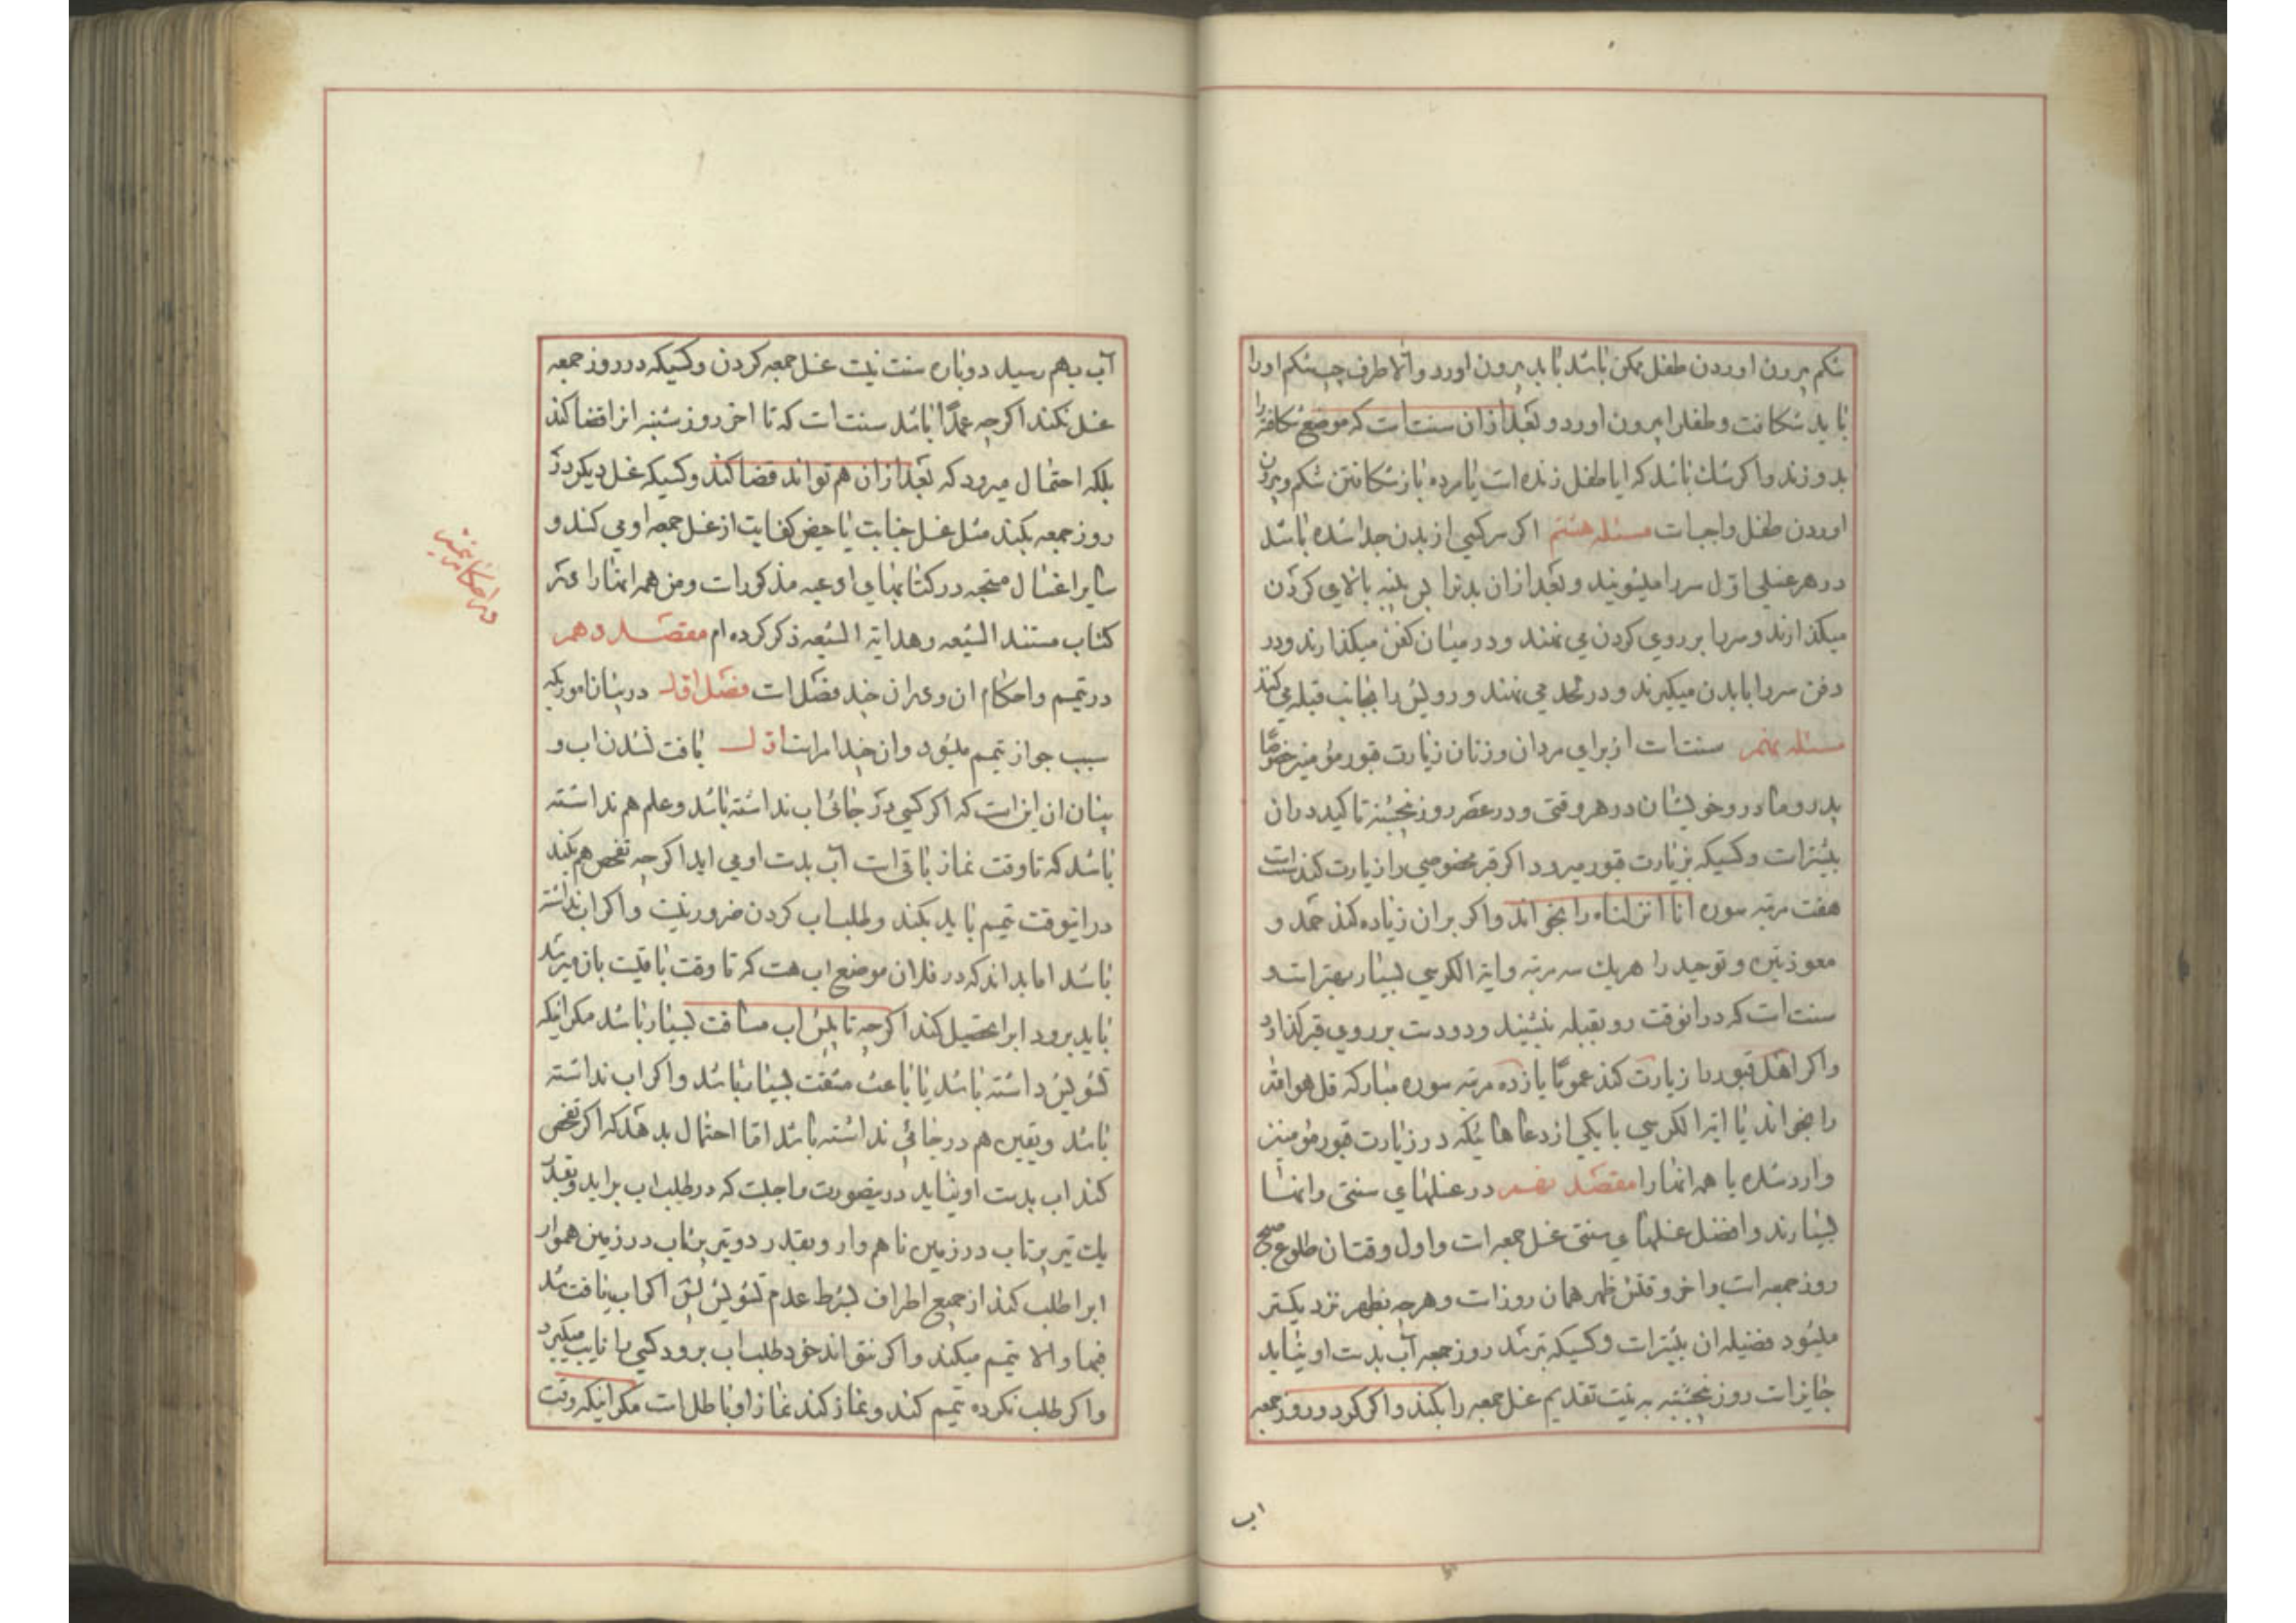 شکم بیرون اوردن طفل ممکن باشد باید بیرون اورد والا طرف چپ شکم او را
باید شکافت و طفل را بیرون اورد و بعد از ان سنت است که موضع شکافته را
بدوزند و اکر شك باشد که ایا طفل زنده است یا مرده باز شکافتن شکم و بیرون
اوردن طفل واجبست مسئله هشتم اکر سر کسی از بدن جدا شده باشد
در هر غسلی اول سر را میشویند و بعد از ان بدنرا پس پنبه بالای کردن
میکذارند و سر را بر روی کردن می نهند و در میان کفن میکذارند و در
دفن سر را با بدن میکیرند و در لحد می نهند و رویش را بجانب قبله می کنند
مسئله نهم سنت است از برای مردان و زنان زیارت قبور مؤمنین خصوصًا
پدر و مادر و خویشان در هر وقتی و در عصر روز پنجشنبه تاکید در ان
بیشتر است و کسیکه بزیارت قبور میرود اکر قبر مخصوصی را زیارت کند سنت است
هفت مرتبه سوره انا انزلناه را بخواند و اکر بر ان زیاده کند حمد و
معوذتین و توحید را هریك سه مرتبه و ایة الکرسی بسیار بهتر است و
سنت است که در انوقت رو بقبله بنشیند و دو دست بر روی قبر کذارد
و اکر اهل قبور را زیارت کند عمومًا یازده مرتبه سوره مبارکه قل هو الله
را بخواند یا ایة الکرسی یا یکی از دعاهائیکه در زیارت قبور مؤمنین
وارد شده یا همه انها را مقصد نهم در غسلهای سنتی و انها
بسیارند و افضل غسلهای سنتی غسل جمعه است و اول وقت ان طلوع صبح
روز جمعه است و اخر وقتش ظهر همان روز است و هر چه بظهر نزدیکتر
میشود فضیله ان بیشتر است و کسیکه بترسد روز جمعه آب بدست او نیاید
جایز است روز پنجشنبه به نیت تقدیم غسل جمعه را بکند و اکر کرد و روز جمعه
اب
آب بهم رسید دوباره سنت نیست غسل جمعه کردن و کسیکه در روز جمعه
غسل نکند اکرچه عمدًا باشد سنت است که تا اخر روز شنبه انرا قضا کند
بلکه احتمال میرود که بعد از ان هم تواند قضا کند و کسیکه غسل دیکر در
روز جمعه بکند مثل غسل جنابت یا حیض کفایت از غسل جمعه او می کند و
سایر اغسال مستحبه در کتابهای ادعیه مذکور است و من همه انها را در
کتاب مستند الشیعه و هدایة الشیعه ذکر کرده ام مقصد دهم
در تیمم و احکام ان و در ان چند فصل است فصل اول در بیان اموریکه
سبب جواز تیمم میشود و ان چند امر است اول یافت نشدن اب و
بیان ان این است که اکر کسی در جائی اب نداشته باشد و علم هم نداشته
باشد که تا وقت نماز باقی است آب بدست او می اید اکرچه تفحص هم بکند
در اینوقت تیمم باید بکند و طلب اب کردن ضرور نیست و اکر اب نداشته
باشد اما بداند که در فلان موضع اب هست که تا وقت باقیست بان میرسد
باید برود ابرا تحصیل کند اکرچه تا پیش اب مسافت بسیار باشد مکر اینکه
تشویش داشته باشد یا باعث مشقت بسیار باشد و اکر اب نداشته
باشد و یقین هم در جائی نداشته باشد اما احتمال بدهد که اکر تفحص
کند اب بدست او بیاید در ینصورت واجبست که در طلب اب براید و بقدر
یك تیر پرتاب در زمین ناهموار و بقدر دو تیر پرتاب در زمین هموار
ابرا طلب کند از جمیع اطراف بشرط عدم تشویش پس اکر اب یافت شد
فبها والا تیمم میکند و اکر نتواند خود طلب اب برود کسی را نایب میکیرد
و اکر طلب نکرده تیمم کند و نماز کند نماز او باطل است مکر اینکه وقت
در احکام تیمم